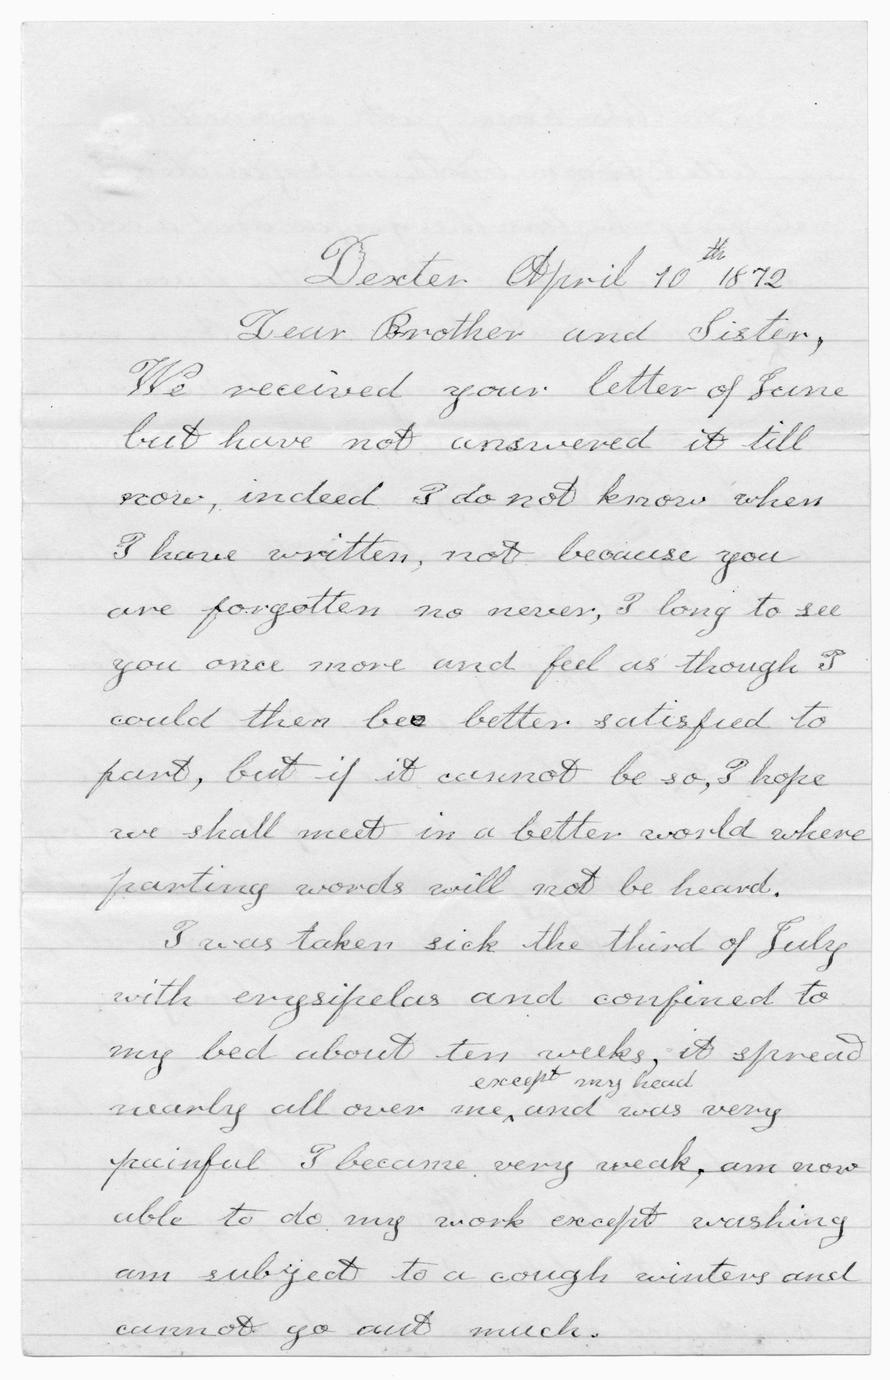 Dexter April 10th 1872
Dear Brother and Sister,
We received your letter of June
but have not answered it till
now, indeed I do not know when
I have written, not because you
are forgotten no never, I long to see
you once more and feel as though I
could then be better satisfied to
part, but if it cannot be so, I hope
we shall meet in a better world where
parting words will not be heard.
I was taken sick the third of July
with erysipelas and confined to
my bed about ten weeks, it spread
except my head
nearly all over me, and was very
painful I became very weak, am now
able to do my work except washing
am subject to a cough winters and
cannot go out much.